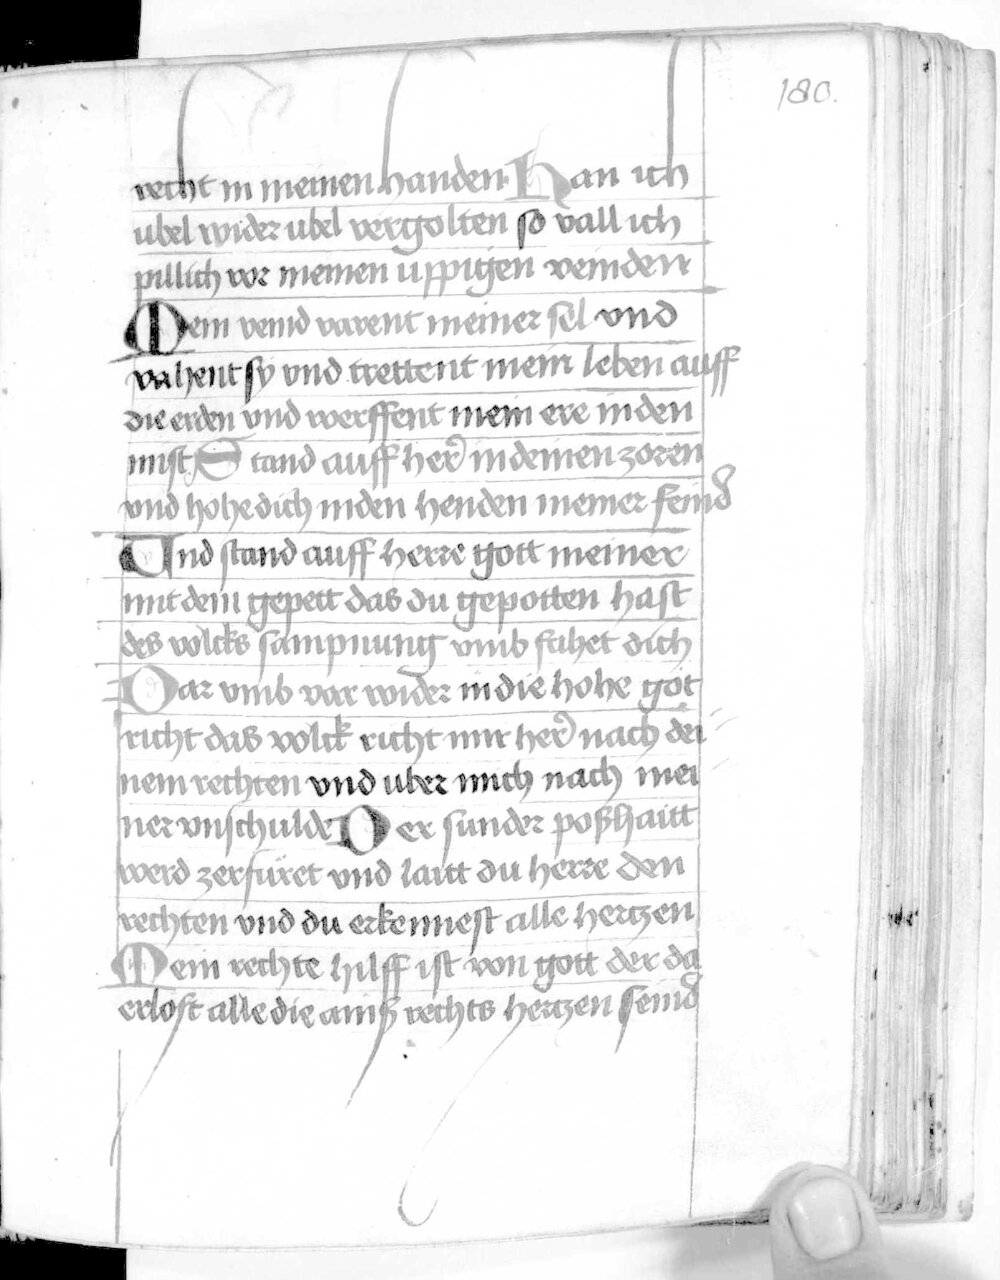 180.
recht in meinen handen. Han ich
ubel wider ubel vergolten so vall ich
pillich vor meinen uppigen veinden
Mein veind varent meiner sel vnd
vahent sy vnd trettent mein leben auff
die erden vnd werffent mein ere in den
mist Stand auff her in deinen zoren
vnd hohe dich in den henden meiner feind
Vnd stand auff herre gott meiner
mit dem gepett das du gepotten hast
des volcks sampnung vmb fahet dich
Dar vmb var wider in die hohe got
richt das volck richt mir her nach dei
nem rechten vnd uber mich nach mei
ner vnschulde Der sunder poßhaitt
werd zerfüret vnd laitt du herre den
rechten vnd du erkennest alle hertzen
Mein rechte hilff ist von gott der da
erlost alle die ainß rechts hertzen seind